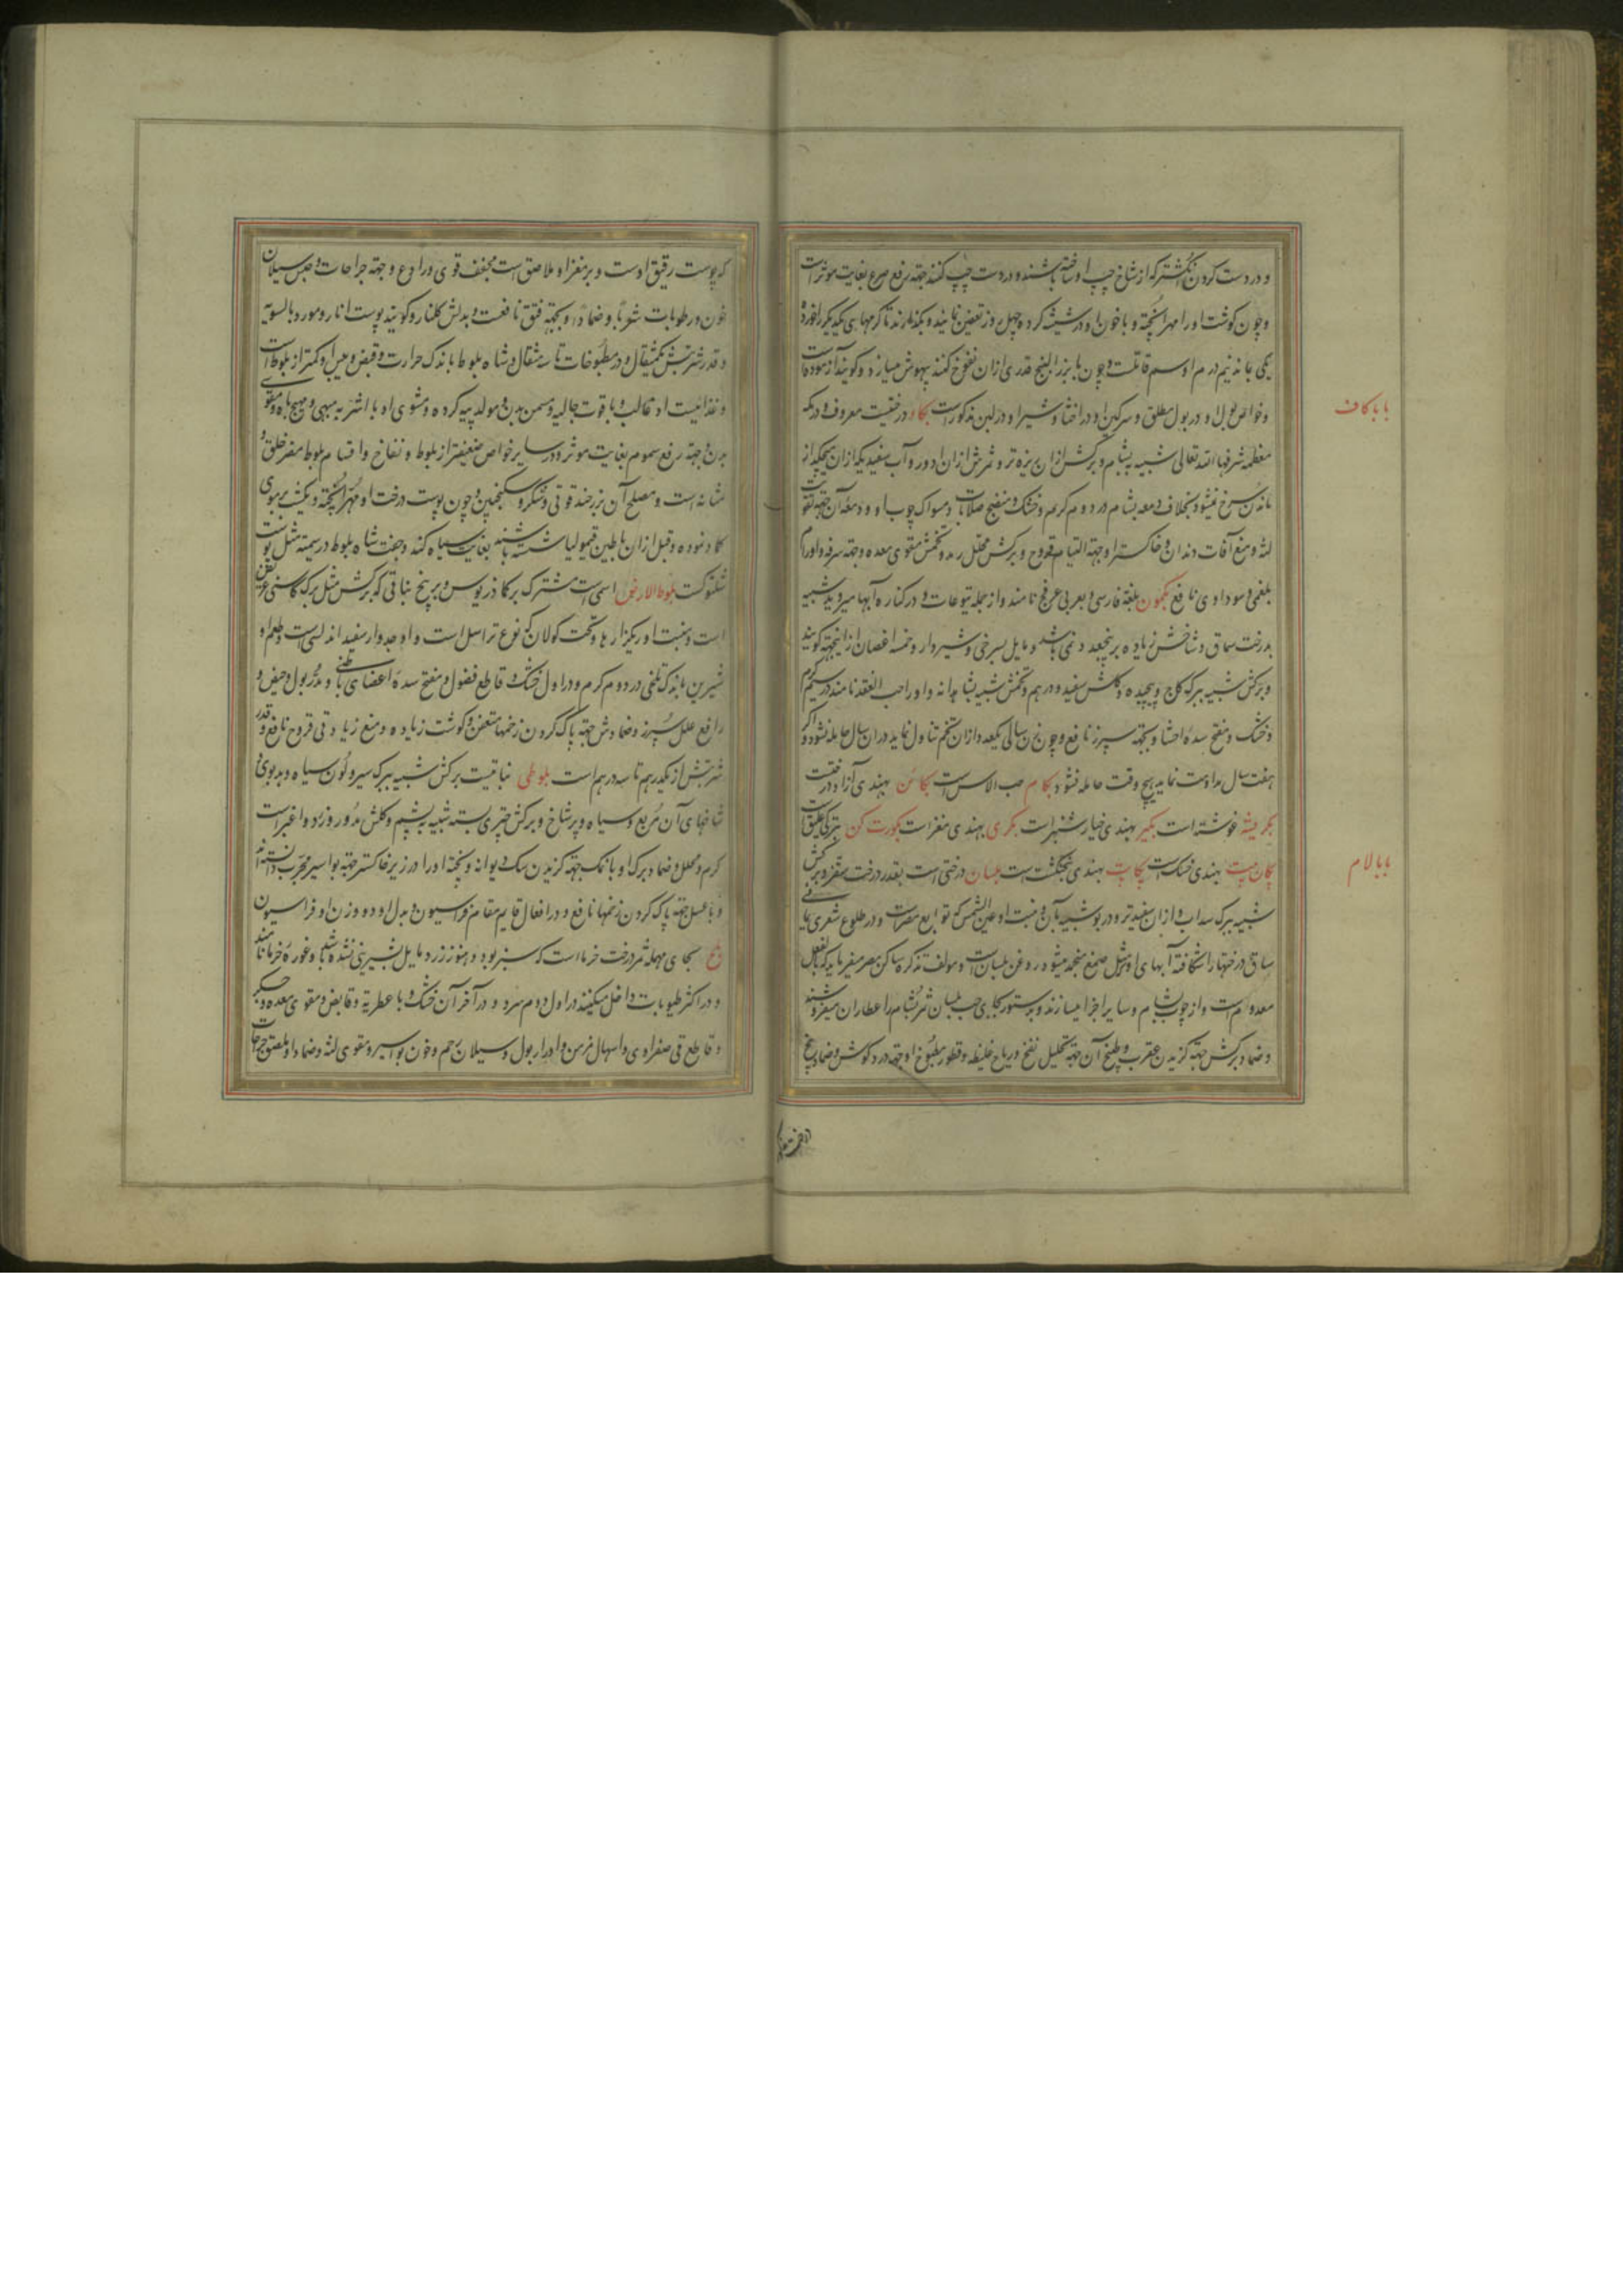 و در دست کردن انگشتر که از شاخ چپ او ساخته باشند و در دست چپ کنند جهة رفع صرع بغایت موثر است
و چون گوشت او را مهرا پخته و با خون او در شیشه کرده چهل روز تعفین نمایند و بگذارند تا کرمها یکدیگر را خورده
یکی بماند نیم درم او سم قاتلست و چون با بزر البنج قدری از آن نفوخ کنند بیهوش میسازد و گویند آزموده است
و خواص بول او در بول مطلق و سرگین او در اخثا و شیر او در لبن مذکور است بکاء درختیست معروف در مکه
باب با کاف
معظمه شرفها الله تعالی شبیه به بشام و برگش از آن ریزه تر و ثمرش از آن ادور و آب سفید که از آن میچکد از
ماندن سرخ نمیشود بخلاف دمعه بشام در دوم گرم و خشک و منضج صلابات و مسواک چوب او و دمعه آن جهة تقویت
لثه و منع آفات دندان و خاکستر او جهة التیام قروح و برگش محلل رمد و تخمش مقوی معده و جهة سرفه و اورام
بلغمی و سوداوی نافع بکمون بلغة فارسی و بعربی عرفج نامند و از جمله یتوعات و در کناره آبها میروید شبیه
بدرخت سماق و شاخش زیاده بر پنج عدد نمی باشد و مایل بسرخی و شیردار و خمسه اغصان از اینجهة گویند
و برگش شبیه ببرگ کلج و پیچیده و گلش سفید و درهم و تخمش شبیه بشاهدانه و او را حب الفقد نامند در سیم گرم
و خشک و مفتح سده احشا و بجهة سپرز نافع و چون زن سالی یکعدد از آن تخم تناول نماید در آن سال حامله نشود و اگر
هفت سال مداومت نماید هیچ وقت حامله نشود بکام حب الاس است بکائن بهندی آزاد درختست
بکر میشه غوشنه است بکیر بهندی خیار شنبر است بکری بهندی مغز است بکورت کن بترکی علیق است
بکان پیت بهندی خسک است بکاپت بهندی پنجنگشت است بلسان درختی است بقدر درخت سقز و برگش
باب با لام
شبیه ببرگ سداب و از آن سفیدتر و در بو شبیه بآن و منبت او عین الشمس که توابع مصر است و در طلوع شعری یمانی
ساق درختها را شکافته آبهای او مثل صمغ منجمد میشود روغن بلسان است و مولف تذکره ساکن مصر میفرماید که بالفعل
معدوم است و از چوب بشام و سایر اجزا میسازند و بدستور بجای حب بلسان ثمر بشام را عطاران میفروشند
و ضماد برگش جهة گزیدن عقرب و طبیخ آن جهة تحلیل نفخ و ریاح غلیظه و قطور مطبوخ او جهة درد گوش و ضماد بیخ
که پوست رقیق اوست و بر مغز او ملاصق است مجفف قوی و رادع و جهة جراحات و حبس سیلان
خون و رطوبات شربا و ضمادا و بجهة فتق نافعست و بدلش گلنار و گویند پوست انار و مورد بالسویه
و قدر شربتش یکمثقال و در مطبوخات تا سه مثقال و شاه بلوط باندک حرارت و قبض و یبس او کمتر از بلوط است
و غذائیت او غالب و با قوت جالیه و مسمن بدن و مولد پیه گرده و مشوی او با اشربه مبهی و مهیج باه و مقوی
بدن جهة رفع سموم بغایت موثر و در سایر خواص ضعیفتر از بلوط و نفاخ و اقسام بلوط مضر حلق و
مثانه است و مصلح آن بریان کردن و شکر و سکنجبین و چون پوست درخت او مهرا پخته و یکشب بر موی
ضماد نموده و قبل از آن با طین قیمولیا شسته باشند بغایت سیاه کند و جفت شاه بلوط در سیمه مثل پوست
شلتوکست بلوط الارض اسمی است مشترک بر کماذریوس و بر بیخ نباتی که برگش مثل برگ کاسنی عریض
است و منبت او ریگزارها و تحت گولان که نوع تر اسل است و او جدوار سفید اندلسی است و طعم او
شیرین باندک تلخی در دوم گرم و در اول خشک و قاطع فضول و مفتح سده اعضای باطنی و مدر بول و حیض و
رافع علل سپرز و ضمادش جهة پاک کردن زخمها متعفن و گوشت زیاده و منع زیادتی قروح نافع و قدر
شربتش از یکدرهم تا سه درهم است بلوطی نباتیست برگش شبیه ببرگ سیر و لون سیاه و بدبوی و
شاخهای آن مربع و سیاه و پر شاخ و برگش چتری بسته شبیه به پشم و گلش مدور و زرد و اغبر است
گرم و محلل و ضماد برگ او با نمک جهة گزیدن سگ دیوانه و پخته او را در زیر خاکستر جهة بواسیر مجرب دانسته اند
و با عسل جهة پاک کردن زخمها نافع و در افعال قایم مقام فراسیون و بدل او دو وزن او فراسیون
بلح بحای مهمله ثمر درخت خرما است که سبز بود و هنوز زرد و مایل بشیرینی نشده باشد و غوره خرما نامند
و در اکثر طیوبات داخل میکنند در اول دوم سرد و در آخر آن خشک و با عطریة و قابض و مقوی معده و جگر
و قاطع قی صفراوی و اسهال مزمن و ادرار بول و سیلان رحم و خون بواسیر و مقوی لثه و ضماد او ملصق جراحات